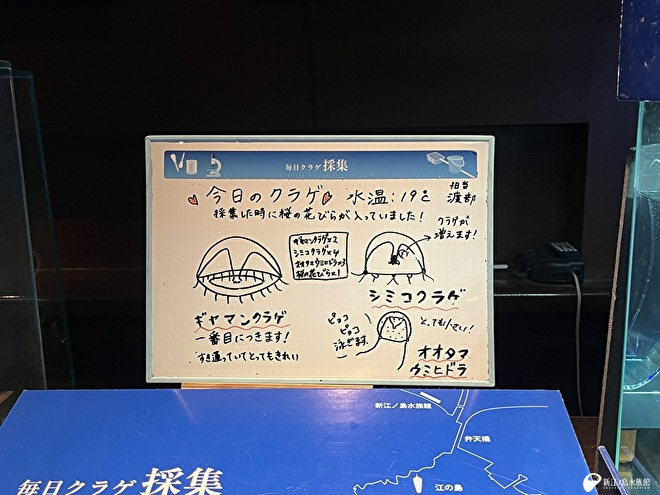 毎日クラゲ 採集
今日のクラゲ 水温:19℃
担当
渡部
採集した時に桜の花びらが入っていました!
ギヤマンクラゲ×2
シミコクラゲ×4
オオタマウミヒドラ×3
桜の花びら×1
クラゲが
増えます!
シミコクラゲ
ギヤマンクラゲ
一番目につきます!
すき通っていてとってもきれい
ピョコ
ピョコ
泳ぎます。
とっても小さい!
オオタマ
ウミヒドラ
新江ノ島水族館
弁天橋
江の島
毎日クラゲ 採集
新江ノ島水族館